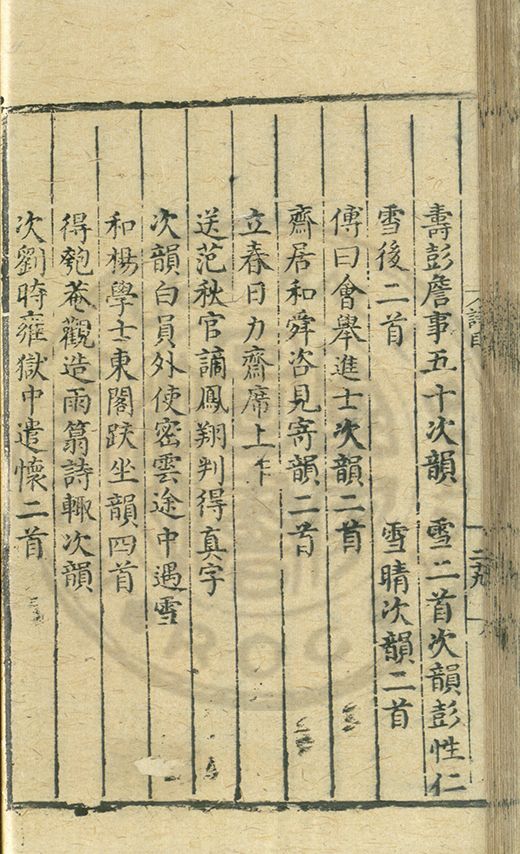 壽彭詹事五十次韻　雪二首次韻彭性仁
雪後二首　雪晴次韻二首
傅曰會舉進士次韻二首
齋居和舜咨見寄韻二首
立春日力齋席上作
送范秋官謫鳳翔判得真字
次韻白員外使密雲途中遇雪
和楊學士東閣趺坐韻四首
得匏菴觀造雨蓑詩輒次韻
次劉時雍獄中遣懷二首